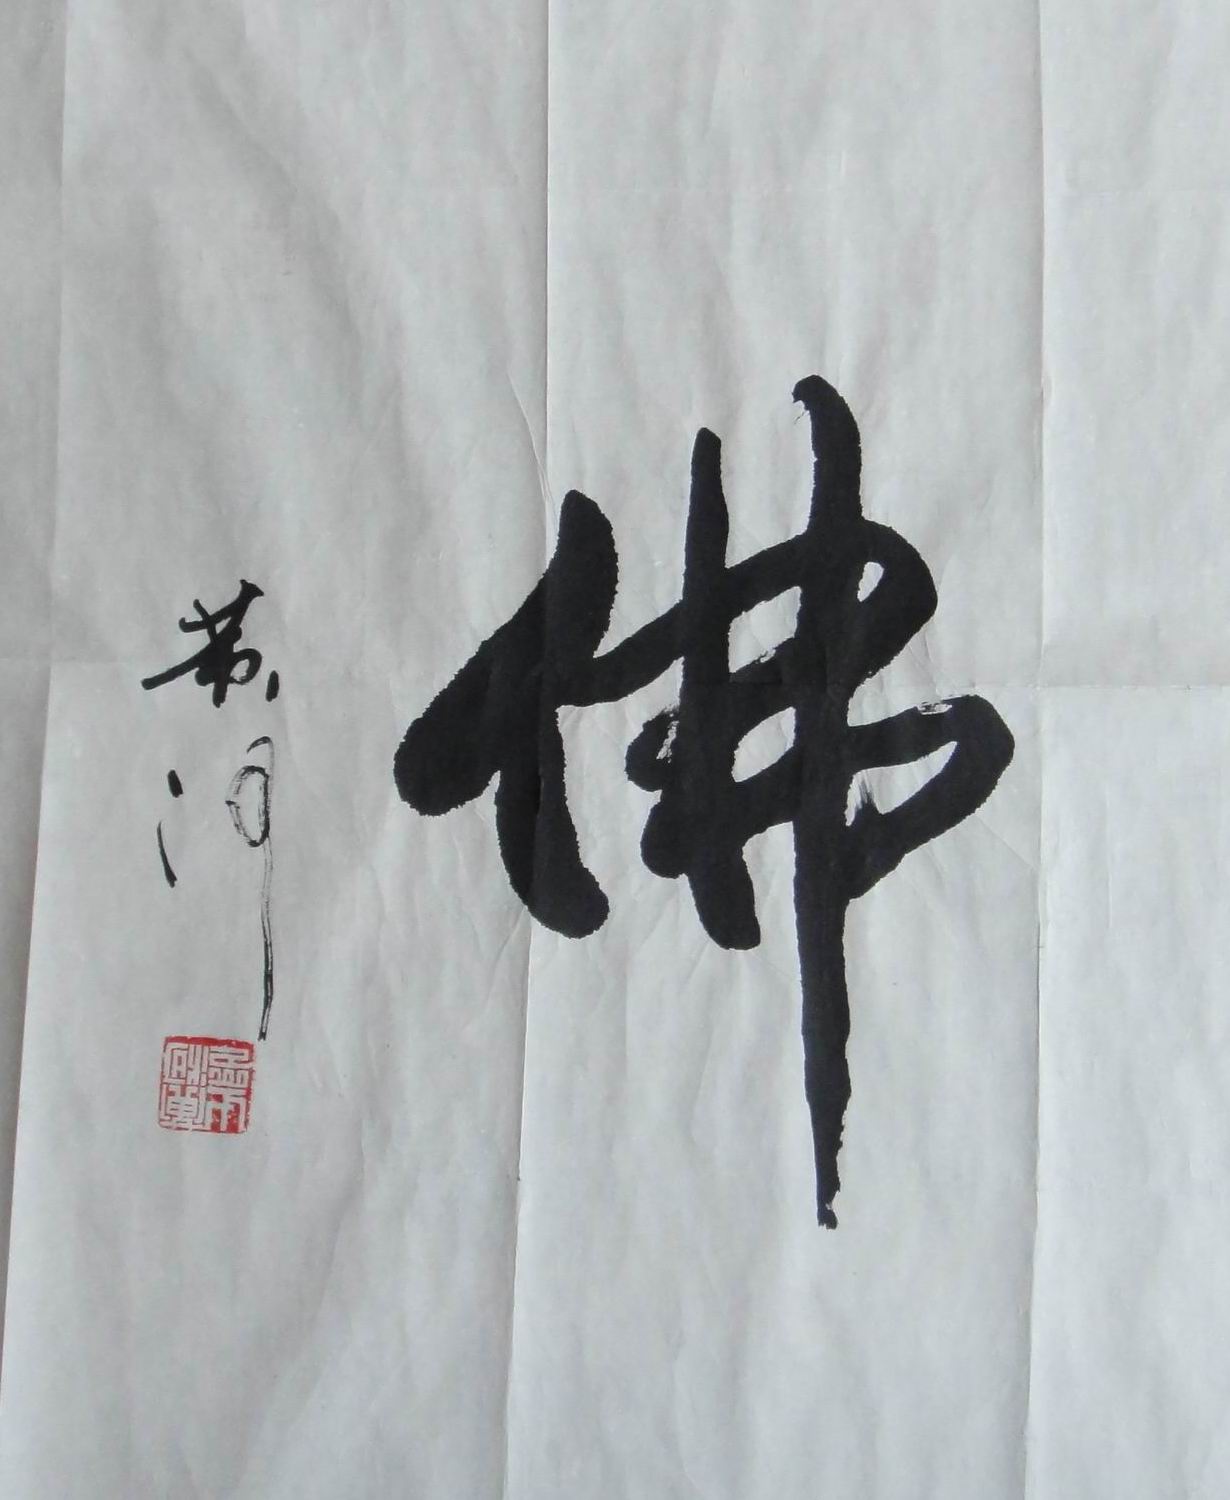 佛
黄河